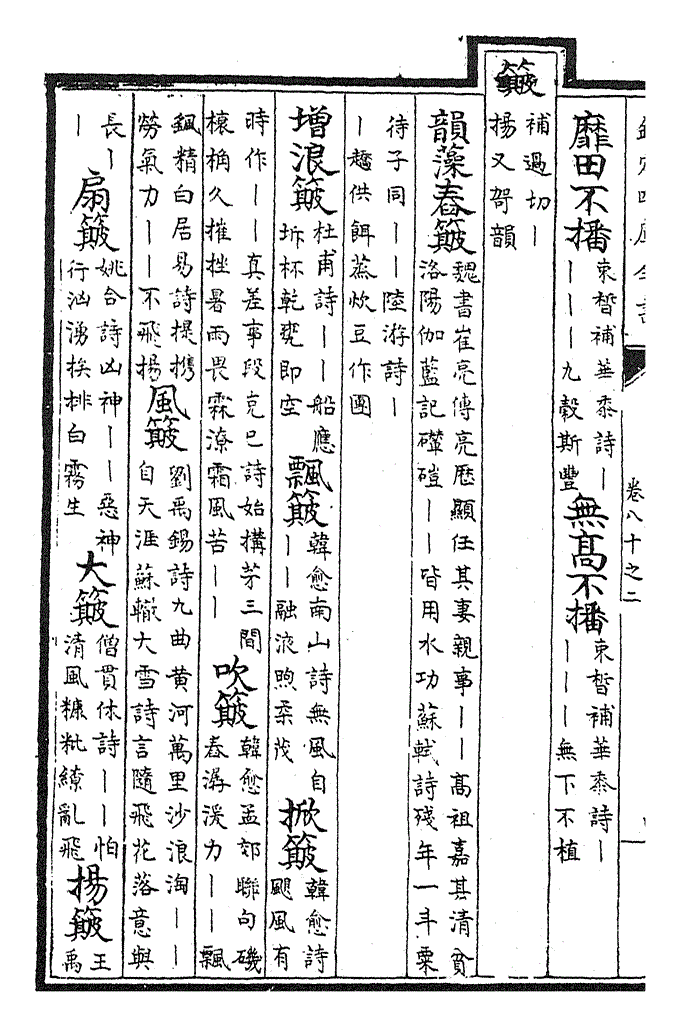 卷八十之二
靡田不播 束晳補華黍詩丨
丨丨丨九穀斯豐
無髙不播 束晳補華黍詩丨
丨丨丨無下不植
簸 補過切丨
揚又哿韻
韻藻舂簸 魏書崔亮傳亮歴顯任其妻親事丨丨髙祖嘉其清貧
洛陽伽藍記磑丨丨皆用水功蘇軾詩殘年一斗粟
待子同丨丨陸游詩丨
丨趣供餌蒸炊豆作團
增浪簸 杜甫詩丨丨船應
坼杯乾甕即空
飄簸 韓愈南山詩無風自
丨丨融液煦柔茂
掀簸 韓愈詩
颶風有
時作丨丨真差事段克已詩始搆茅三間
榱桷久摧挫暑雨畏霖潦霜風苦丨丨
吹簸 韓愈孟郊聯句磯
舂潺湲力丨丨飄
颻精白居易詩提攜
勞氣力丨丨不飛揚
風簸 劉禹錫詩九曲黄河萬里沙浪淘丨丨
自天涯蘇轍大雪詩言隨飛花落意與
長丨
丨
扇簸 姚合詩凶神丨丨惡神
行洶湧挨排白霧生
大簸 僧貫休詩丨丨怕
清風糠粃繚亂飛
揚簸 王
禹